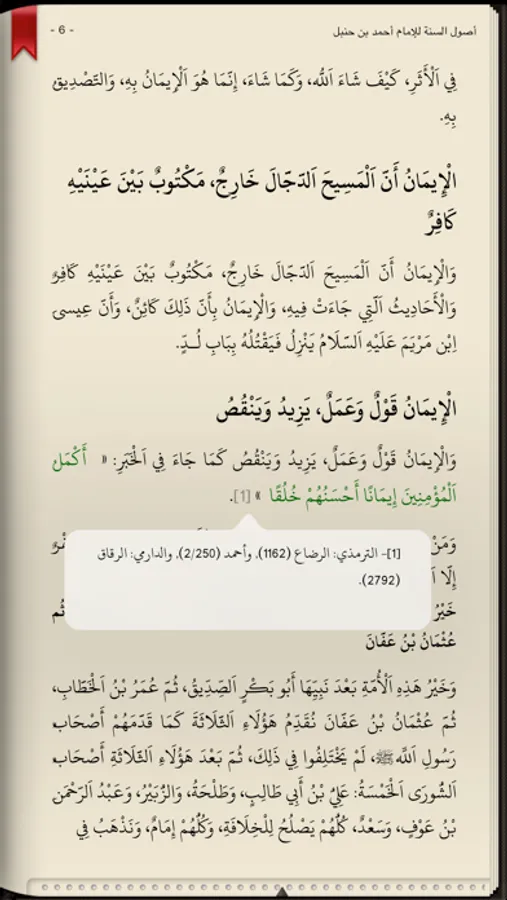 أصول السنة للإمام أحمد بن حنبل
- 6 -
فِي اَلْأَثَرِ، كَيْفَ شَاءَ اَللَّه، وَكَمَا شَاءَ، إِنَّمَا هُوَ اَلْإِيمَانُ بِهِ، وَالتَّصْدِيقُ
بِهِ.
الْإِيمَانُ أَنَّ اَلْمَسِيحَ اَلدَّجَّالَ خَارِجٌ، مَكْتُوبٌ بَيْنَ عَيْنَيْهِ
كَافِرٌ
وَالْإِيمَانُ أَنَّ اَلْمَسِيحَ اَلدَّجَّالَ خَارِجٌ، مَكْتُوبٌ بَيْنَ عَيْنَيْهِ كَافِرٌ
وَالْأَحَادِيثُ اَلَّتِي جَاءَتْ فِيهِ، وَالْإِيمَانُ بِأَنَّ ذَلِكَ كَائِنٌ، وَأَنَّ عِيسَى
اِبْن مَرْيَمَ عَلَيْهِ اَلسَّلَامُ يَنْزِلُ فَيَقْتُلُهُ بِبَابِ لُـدٍّ.
الْإِيمَانُ قَوْلٌ وَعَمَلٌ، يَزِيدُ وَيَنْقُصُ
وَالْإِيمَانُ قَوْلٌ وَعَمَلٌ، يَزِيدُ وَيَنْقُصُ كَمَا جَاءَ فِي اَلْخَبَرِ: « أَكْمَلُ
اَلْمُؤْمِنِينَ إِيمَانًا أَحْسَنُهُمْ خُلُقًا » [1].
وَمَنْ
[1]- الترمذي: الرضاع (1162)، وأحمد (2/250)، والدارمي: الرقاق
(2792).
إِلَّا
خَيْرُ
ثُم
عُثْمَانُ بْنُ عَفَّانَ
وَخَيْرُ هَذِهِ اَلْأُمَّةِ بَعْدَ نَبِيِّهَا أَبُو بَكْرٍ اَلصِّدِّيقُ، ثُمَّ عُمَرُ بْنُ اَلْخَطَّابِ،
ثُمَّ عُثْمَانُ بْنُ عَفَانَ نُقَدِّمُ هَؤُلَاءِ اَلثَّلَاثَةَ كَمَا قَدَّمَهُمْ أَصْحَابُ
رَسُولِ اَللَّهِ ﷺ، لَمْ يَخْتَلِفُوا فِي ذَلِكَ، ثُمَّ بَعْدَ هَؤُلَاءِ اَلثَّلَاثَةِ أَصْحَابُ
اَلشُّورَى اَلْخَمْسَةُ: عَلِيُّ بْنُ أَبِي طَالِبٍ، وَطَلْحَةُ، وَالزُّبَيْرُ، وَعَبْدُ اَلرَّحْمَنِ
بْنُ عَوْفٍ، وَسَعْدٌ، كُلُّهُمْ يَصْلُحُ لِلْخِلَافَةِ، وَكُلُّهُمْ إِمَامٌ، وَنَذْهَبُ فِي